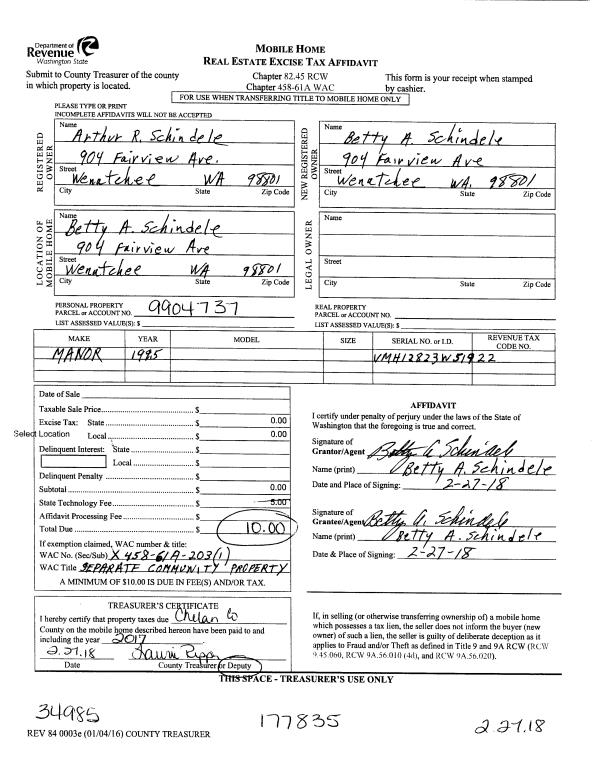 Department of
Revenue
Washington State
MOBILE HOME
REAL ESTATE EXCISE TAX AFFIDAVIT
Submit to County Treasurer of the county
in which property is located.
Chapter 82.45 RCW
Chapter 458-61A WAC
This form is your receipt when stamped
by cashier.
FOR USE WHEN TRANSFERRING TITLE TO MOBILE HOME ONLY
PLEASE TYPE OR PRINT
INCOMPLETE AFFIDAVITS WILL NOT BE ACCEPTED
REGISTERED
OWNER
Name
Arthur R. Schindele
904 Fairview Ave.
Street
Wenatchee WA 98801
City State Zip Code
NEW REGISTERED
OWNER
Name
Betty A. Schindele
904 Fairview Ave
Street
Wenatchee WA. 98801
City State Zip Code
LOCATION OF
MOBILE HOME
Name
Betty A. Schindele
904 Fairview Ave
Street
Wenatchee WA 98801
City State Zip Code
LEGAL OWNER
Name
Street
City State Zip Code
PERSONAL PROPERTY
PARCEL or ACCOUNT NO. 9904737
LIST ASSESSED VALUE(S): $
REAL PROPERTY
PARCEL or ACCOUNT NO.
LIST ASSESSED VALUE(S): $
MAKE YEAR MODEL SIZE SERIAL NO. or I.D. REVENUE TAX
CODE NO.
MANOR 1985 VMH12823W51922
Date of Sale
Taxable Sale Price $
Excise Tax: State $ 0.00
Select Location Local $ 0.00
Delinquent Interest: State $
Local $
Delinquent Penalty $
Subtotal $ 0.00
State Technology Fee $ 5.00
Affidavit Processing Fee $
Total Due $ 10.00
If exemption claimed, WAC number & title:
WAC No. (Sec/Sub) X 458-61A-203(1)
WAC Title SEPARATE COMMUNITY PROPERTY
A MINIMUM OF $10.00 IS DUE IN FEE(S) AND/OR TAX.
AFFIDAVIT
I certify under penalty of perjury under the laws of the State of
Washington that the foregoing is true and correct.
Signature of
Grantor/Agent Betty A Schindele
Name (print) Betty A. Schindele
Date and Place of Signing: 2-27-18
Signature of
Grantee/Agent Betty A. Schindele
Name (print) Betty A. Schindele
Date & Place of Signing: 2-27-18
TREASURER'S CERTIFICATE
I hereby certify that property taxes due Chelan Co
County on the mobile home described hereon have been paid to and
including the year 2017
2.27.18
Date County Treasurer or Deputy
If, in selling (or otherwise transferring ownership of) a mobile home
which possesses a tax lien, the seller does not inform the buyer (new
owner) of such a lien, the seller is guilty of deliberate deception as it
applies to Fraud and/or Theft as defined in Title 9 and 9A RCW (RCW
9.45.060, RCW 9A.56.010 (4d), and RCW 9A.56.020).
THIS SPACE - TREASURER'S USE ONLY
34985
177835
2.27.18
REV 84 0003e (01/04/16) COUNTY TREASURER